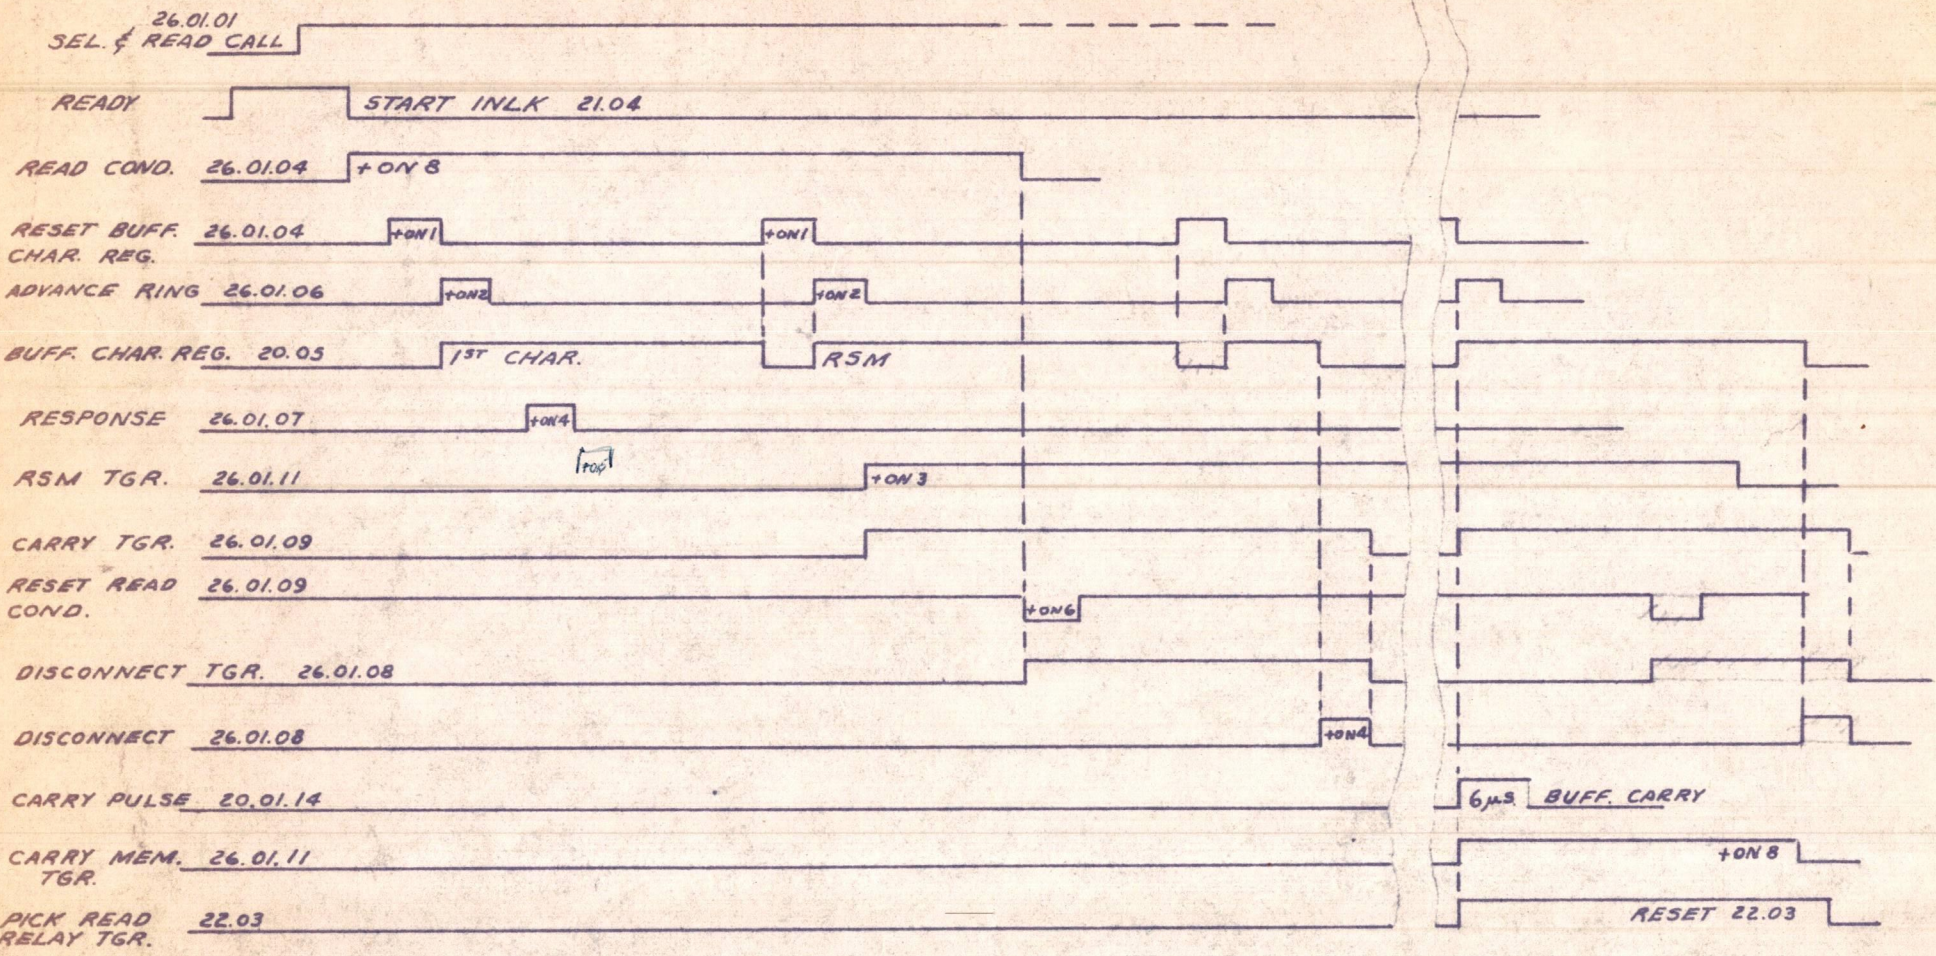 26.01.01
SEL. & READ CALL
READY START INLK 21.04
READ COND. 26.01.04 +ON 8
RESET BUFF. 26.01.04 +ON1 +ON1
CHAR. REG.
ADVANCE RING 26.01.06 +ON2 +ON2
BUFF. CHAR. REG. 20.05 1ST CHAR. RSM
RESPONSE 26.01.07 +ON4
RSM TGR. 26.01.11 +ON 3
CARRY TGR. 26.01.09
RESET READ 26.01.09
COND. +ON6
DISCONNECT TGR. 26.01.08
DISCONNECT 26.01.08 +ON4
CARRY PULSE 20.01.14 6μs. BUFF. CARRY
CARRY MEM. 26.01.11 +ON 8
TGR.
PICK READ 22.03 RESET 22.03
RELAY TGR.